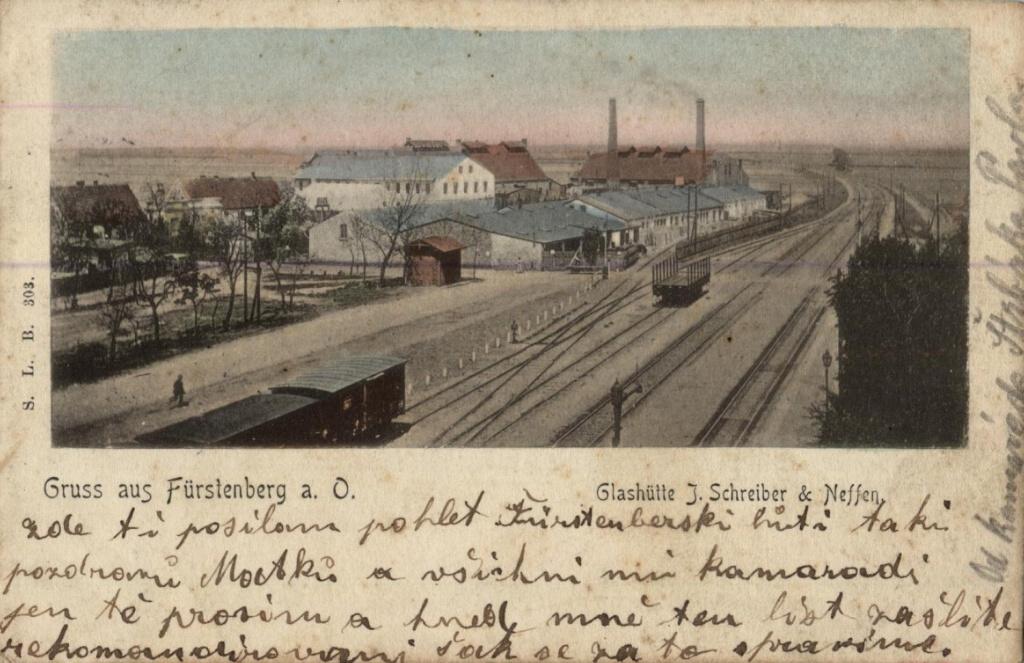 S. L. B. 303.
Gruss aus Fürstenberg a. O.
Glashütte J. Schreiber & Neffen.
zde ti posilam pohlet Fürstenberski huti taki
pozdravů Matků a všichni mu kamaradi
jen tě prosim a hned mně ten list zašlite
rekomandirovani šak se za to spravime.
Od